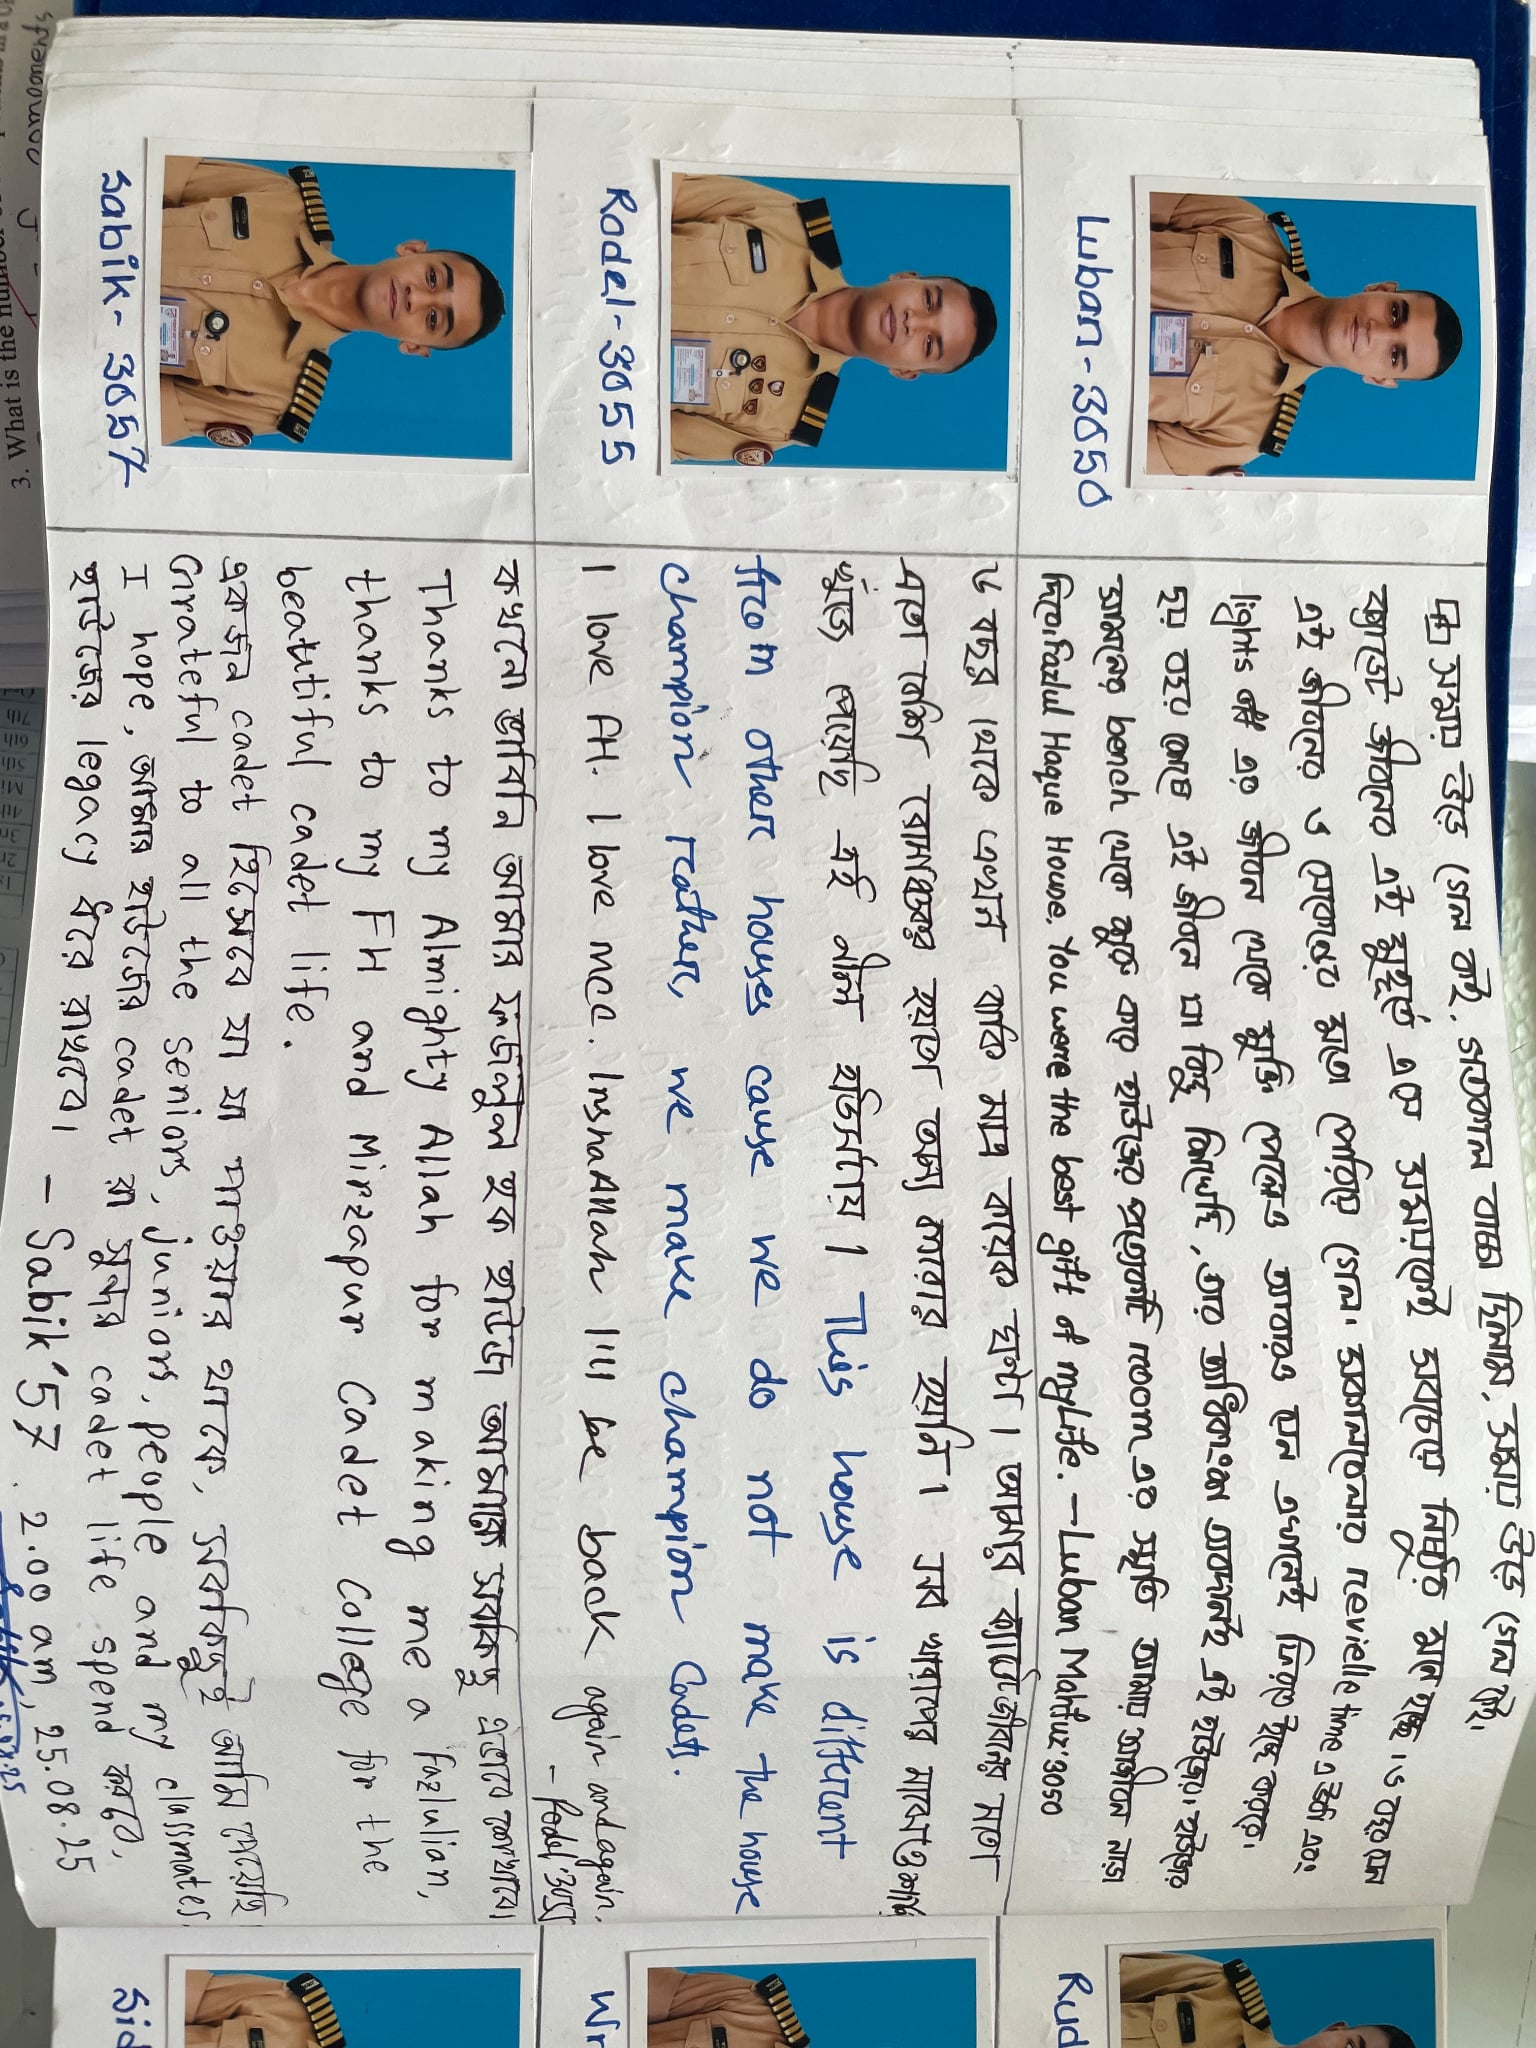 সময় উড়ে গেল কই, গতকাল বাচ্চা ছিলাম, সময় উড়ে গেল কই।
ক্যাডেট জীবনের এই মুহূর্তে এসে সময়কেই সবচেয়ে নিষ্ঠুর মনে হচ্ছে। ৬ বছর যেন
এই জীবনের ৬ সেকেন্ডের মতো পেরিয়ে গেল। সকালবেলার revielle time এ উঠা এবং
lights off এর জীবন থেকে মুক্তি পেলেও আবারও যেন এখানেই ফিরতে ইচ্ছে করবে।
ছয় বছর শেষে এই জীবনে যা কিছু শিখেছি, তার অধিকাংশ অবদানই এই হাউজের। হাউজের
সামনের bench থেকে শুরু করে হাউজের প্রত্যেকটি room এর স্মৃতি আমায় আজীবন নাড়া
দিবে। Fazlul Haque House, You were the best gift of my Life. - Luban Mahfuz'3050
Luban-3050
৬ বছর থেকে এখন বাকি মাত্র কয়েক ঘণ্টা। আমার ক্যাডেট জীবনের মতো
এতো বেশি রোমাঞ্চকর হয়তো অন্য কারোর হয়নি। সব খারাপের মাঝেও শান্তি
খুঁজে পেয়েছি এই নীল হাউসটায়। This house is different
from other houses cause we do not make the house
champion rather, we make champion Cadets.
I love FH. I love MCC. InshaAllah I'll be back again and again.
- Rodel'3055
Rodel-3055
কখনো ভাবিনি আমার ফজলুল হক হাউজ আমাকে সবকিছু এভাবে শেখাবে।
Thanks to my Almighty Allah for making me a Fazlulian,
thanks to my FH and Mirzapur Cadet College for the
beautiful cadet life.
একজন cadet হিসেবে যা যা পাওয়ার থাকে, সবকিছুই আমি পেয়েছি
Grateful to all the seniors, juniors, people and my classmates.
I hope, আমার হাউজের cadet রা সুন্দর cadet life spend করবে,
হাউজের legacy ধরে রাখবে। - Sabik'57 2.00 am, 25.08.25
Sabik-3057
Rud
Wr
Sid
3. What is the